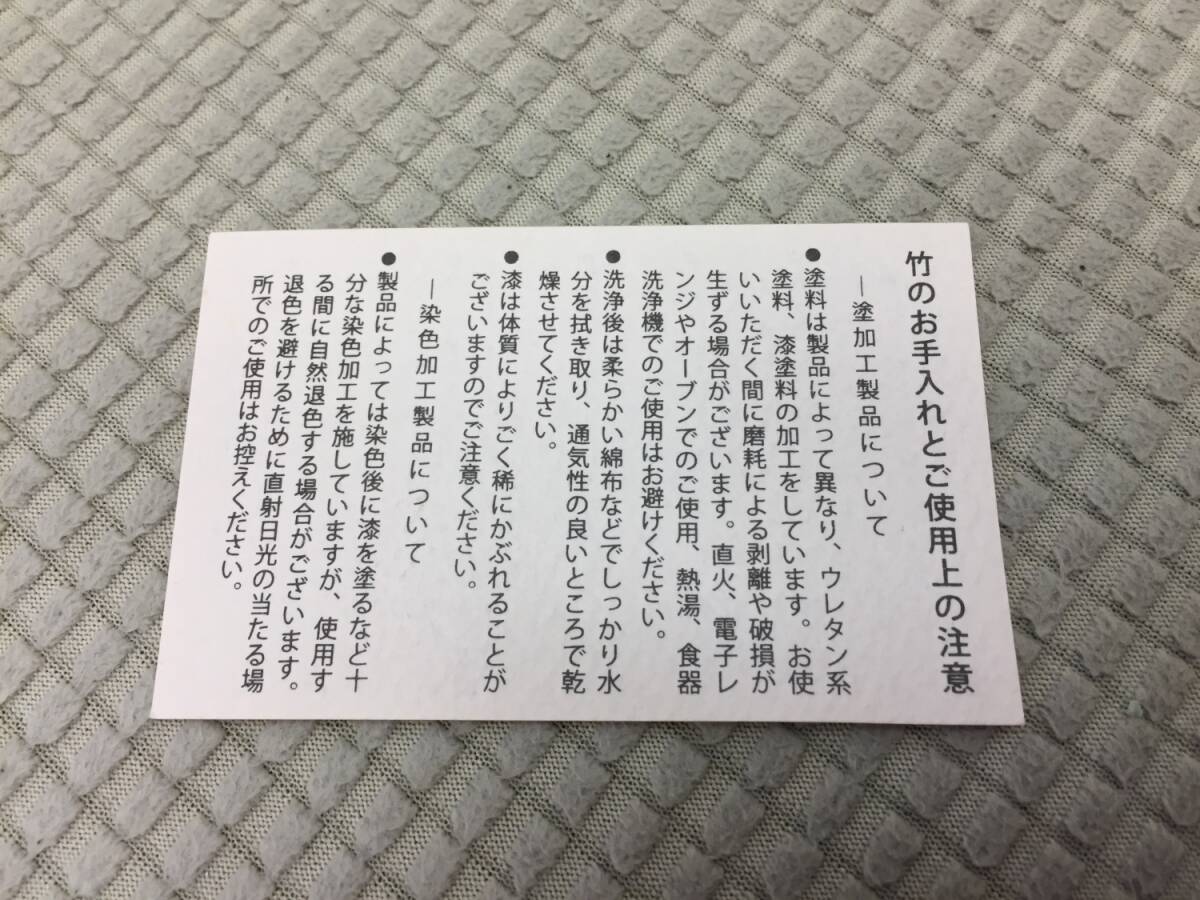 竹のお手入れとご使用上の注意
―塗加工製品について
●塗料は製品によって異なり、ウレタン系
塗料、漆塗料の加工をしています。お使
いいただく間に磨耗による剥離や破損が
生ずる場合がございます。直火、電子レ
ンジやオーブンでのご使用、熱湯、食器
洗浄機でのご使用はお避けください。
●洗浄後は柔らかい綿布などでしっかり水
分を拭き取り、通気性の良いところで乾
燥させてください。
●漆は体質によりごく稀にかぶれることが
ございますのでご注意ください。
―染色加工製品について
●製品によっては染色後に漆を塗るなど十
分な染色加工を施していますが、使用す
る間に自然退色する場合がございます。
退色を避けるために直射日光の当たる場
所でのご使用はお控えください。